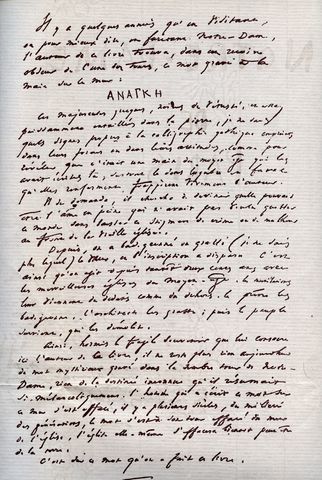 Il y a quelques années qu'en visitant,
ou pour mieux dire, en furetant Notre-Dame,
l'auteur de ce livre trouva, dans un recoin
obscur de l'une des tours, ce mot gravé à la
main sur le mur :
ΑΝΑΓΚΗ
Ces majuscules grecques, noires de vétusté, et assez
profondément entaillées dans la pierre, je ne sais
quels signes propres à la calligraphie gothique empreints
dans leurs formes et dans leurs attitudes, comme pour
révéler que c'était une main du moyen âge qui les
avait écrites là, surtout le sens lugubre et fatal
qu'elles renferment, frappèrent vivement l'auteur.
Il se demanda, il chercha à deviner quelle pouvait
être l'âme en peine qui n'avait pas voulu quitter
ce monde sans laisser ce stigmate de crime ou de malheur
au front de la vieille église.
Depuis, on a badigeonné ou gratté (je ne sais
plus lequel) le mur, et l'inscription a disparu. C'est
ainsi qu'on agit depuis tantôt deux cents ans avec
les merveilleuses églises du moyen-âge. Les mutilations
leur viennent de dedans comme du dehors. Le prêtre les
badigeonne, l'architecte les gratte ; puis le peuple
survient, qui les démolit.
Ainsi, hormis le fragile souvenir que lui consacre
ici l'auteur de ce livre, il ne reste plus rien aujourd'hui
du mot mystérieux gravé dans la sombre tour de Notre-
Dame, rien de la destinée inconnue qu'il résumait
si mélancoliquement. L'homme qui a écrit ce mot sur
ce mur s'est effacé, il y a plusieurs siècles, du milieu
des générations, le mot s'est à son tour effacé du mur
de l'église, l'église elle-même s'effacera bientôt peut-être
de la terre.
C'est sur ce mot qu'on a fait ce livre.